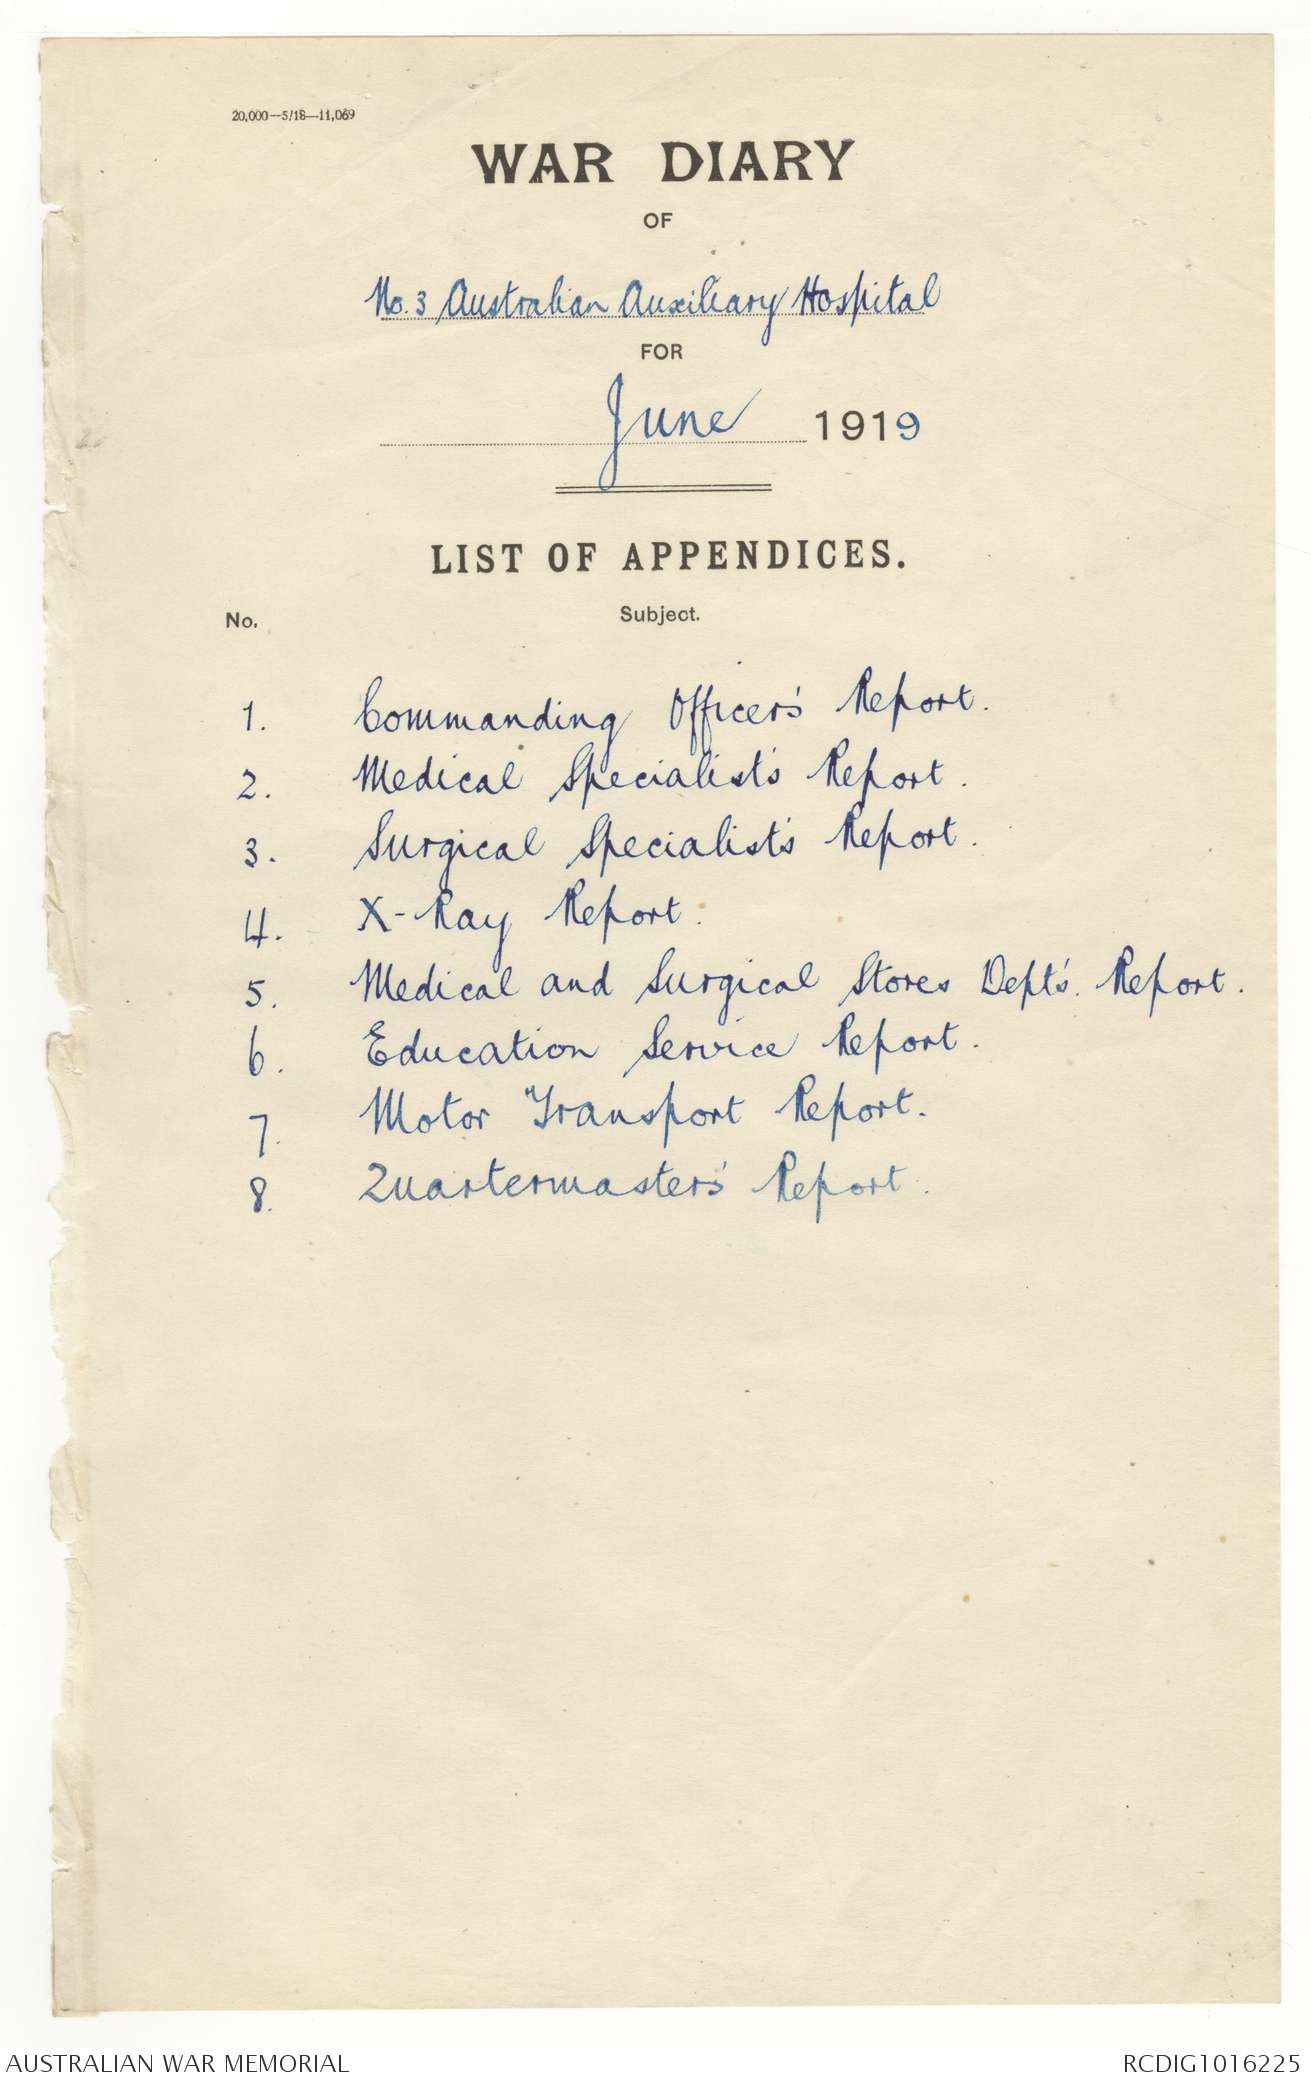 20,000—5/18—11,069
WAR DIARY
OF
No. 3 Australian Auxiliary Hospital
FOR
June 1919
LIST OF APPENDICES.
No. Subject.
1. Commanding Officer's Report.
2. Medical Specialist's Report.
3. Surgical Specialist's Report.
4. X-Ray Report.
5. Medical and Surgical Stores Dept's. Report.
6. Education Service Report.
7. Motor Transport Report.
8. Quartermaster's Report.
AUSTRALIAN WAR MEMORIAL RCDIG1016225